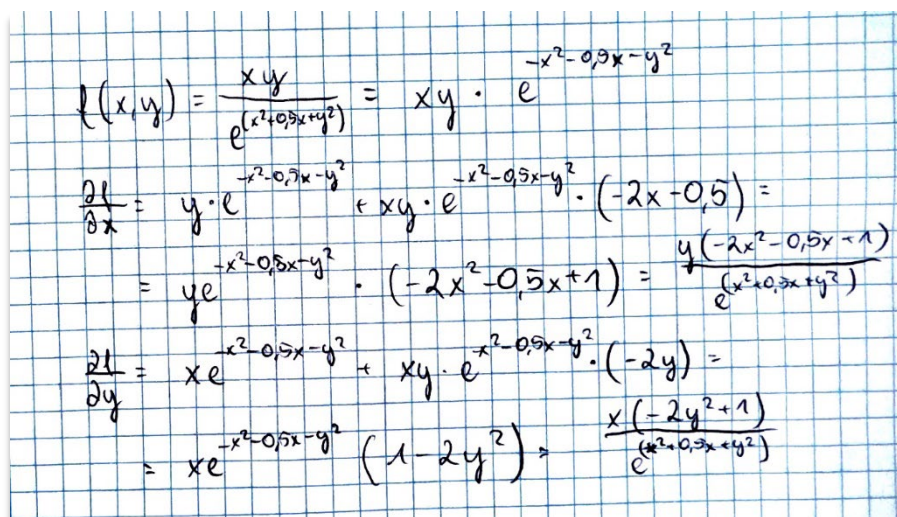 f(x,y) = \frac{xy}{e^{(x^2+0,5x+y^2)}} = xy \cdot e^{-x^2-0,5x-y^2}
\frac{\partial f}{\partial x} = y \cdot e^{-x^2-0,5x-y^2} + xy \cdot e^{-x^2-0,5x-y^2} \cdot (-2x-0,5) =
= ye^{-x^2-0,5x-y^2} \cdot (-2x^2-0,5x+1) = \frac{y(-2x^2-0,5x+1)}{e^{(x^2+0,5x+y^2)}}
\frac{\partial f}{\partial y} = xe^{-x^2-0,5x-y^2} + xy \cdot e^{-x^2-0,5x-y^2} \cdot (-2y) =
= xe^{-x^2-0,5x-y^2} (1-2y^2) = \frac{x(-2y^2+1)}{e^{(x^2+0,5x+y^2)}}